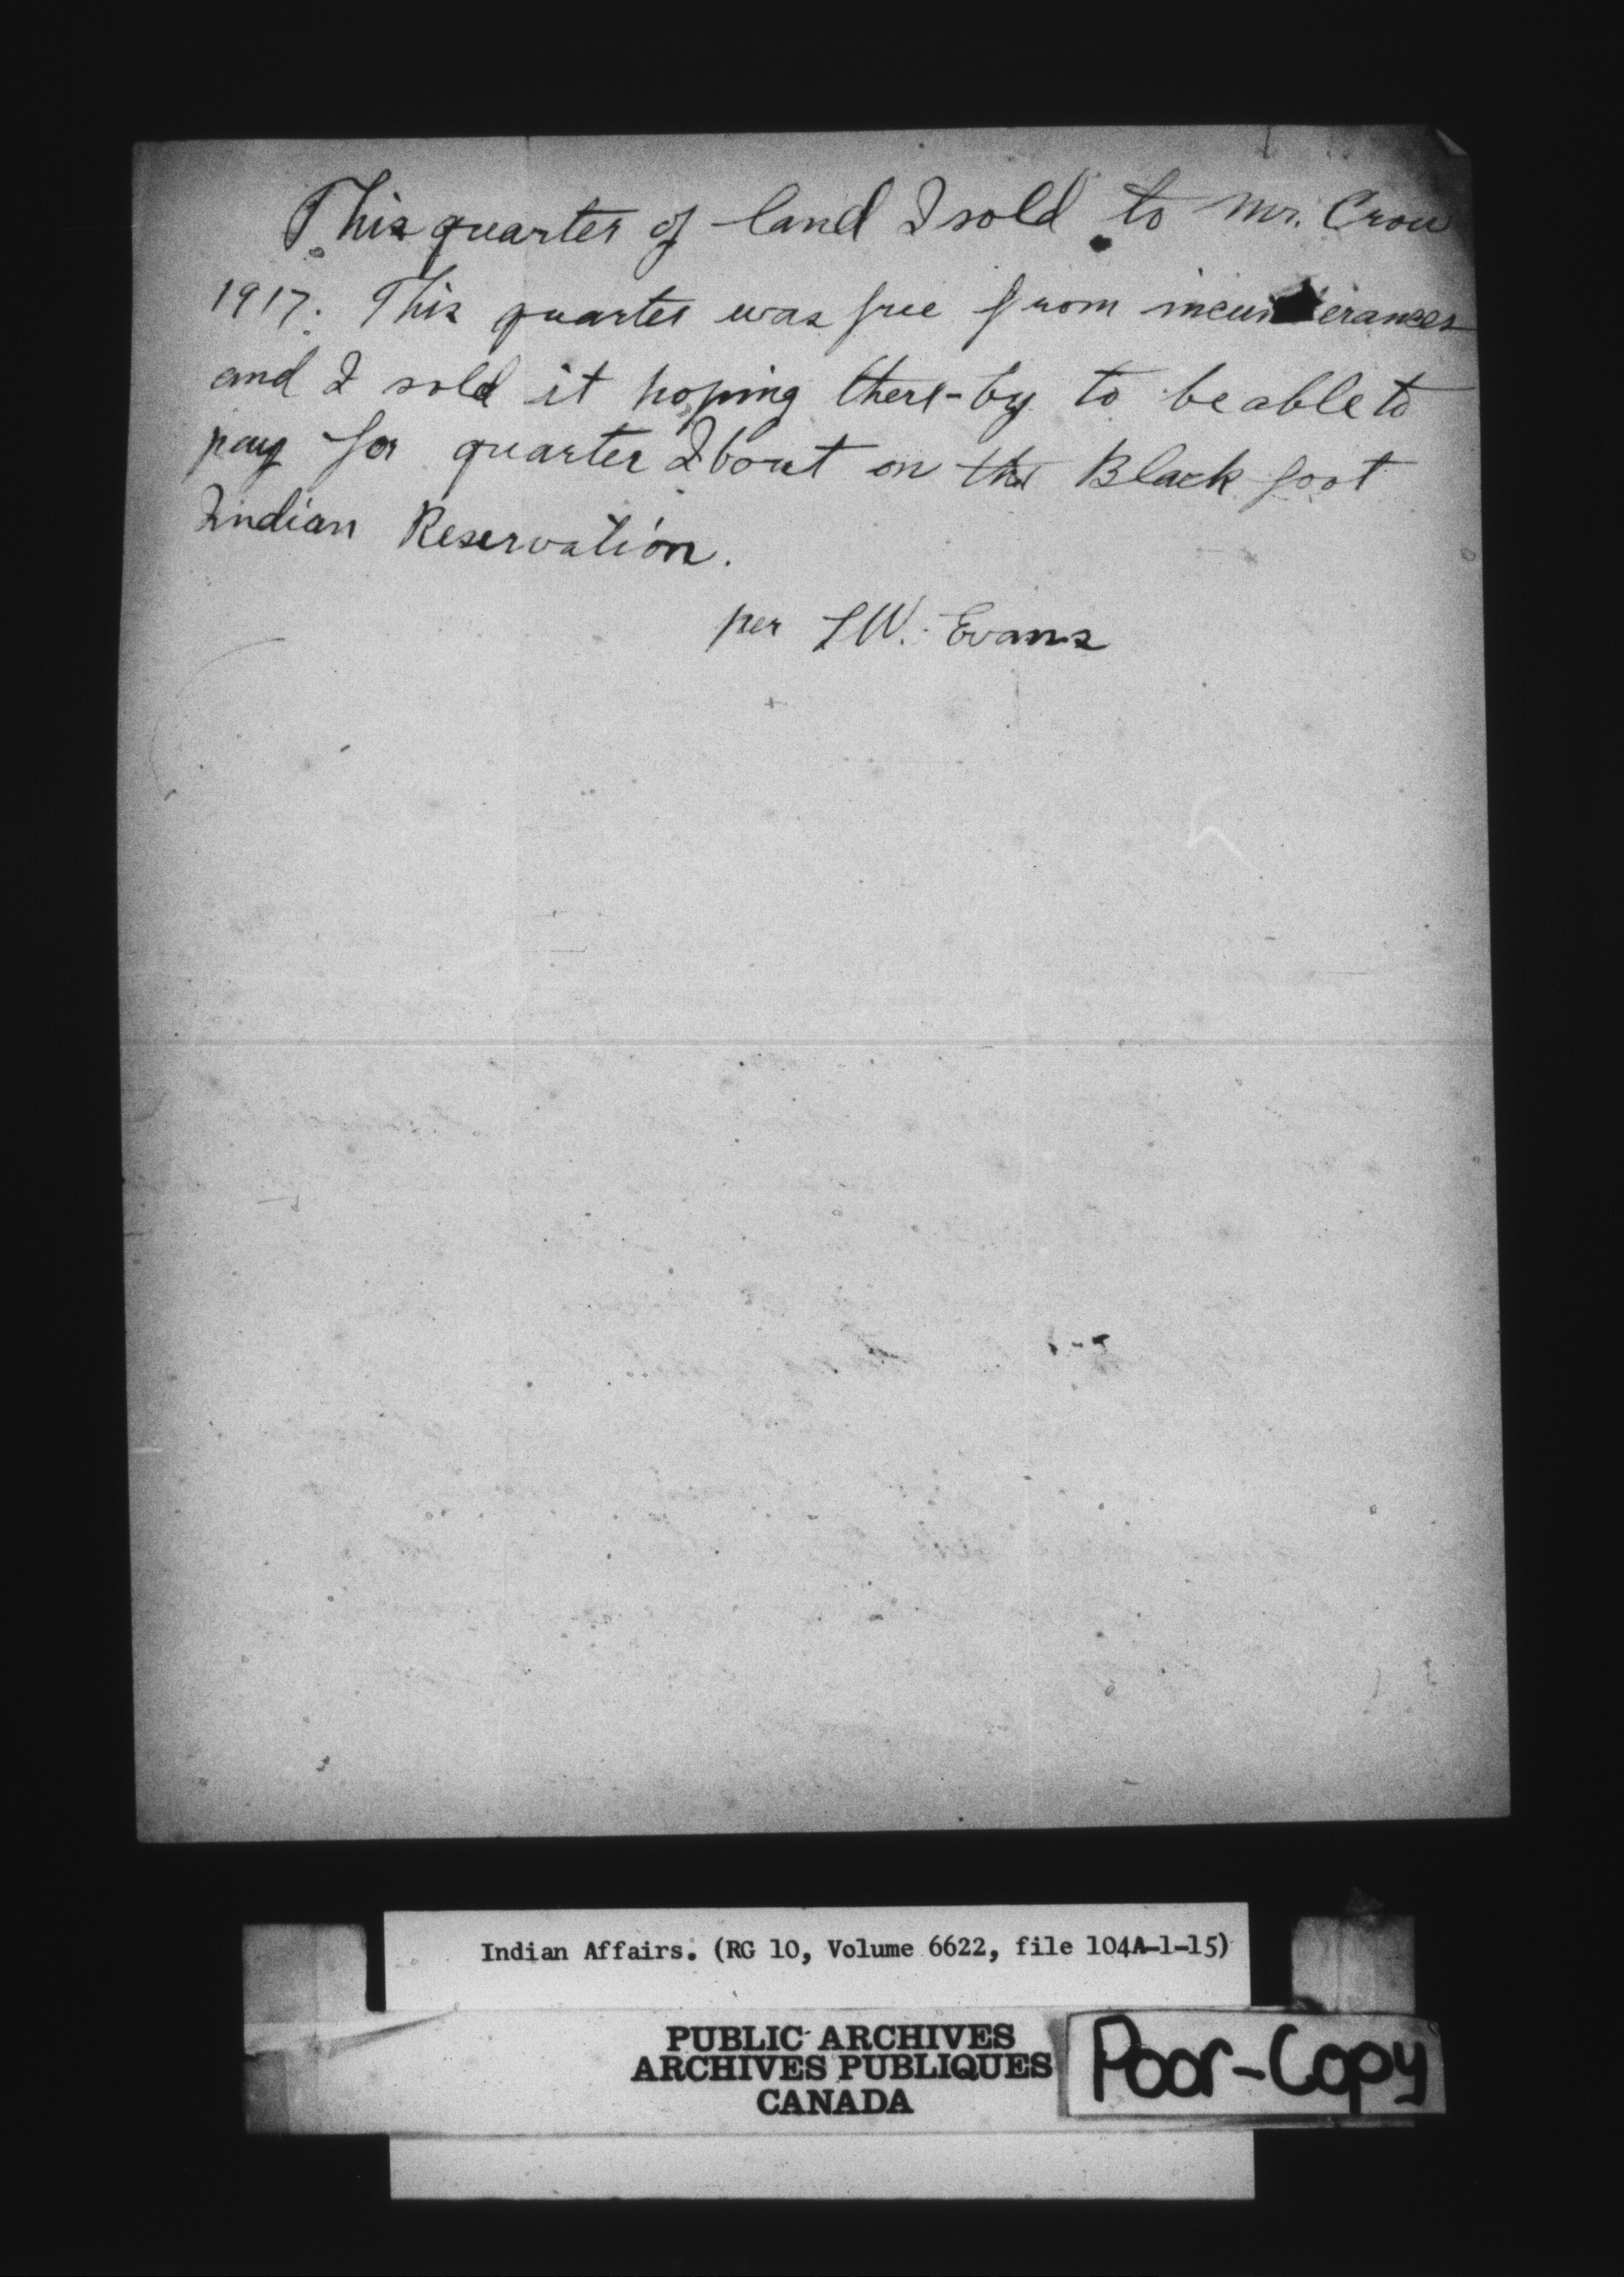 This quarter of land I sold to Mr. Crow
1917. This quarter was free from
and I sold it hoping there-by to be able to
pay for quarter I bout on the Black foot
Indian Reservation.
per Evans
Indian Affairs. (RG 10, Volume 6622, file 104A-1-15)
PUBLIC ARCHIVES
ARCHIVES PUBLIQUES
CANADA
Poor-Copy